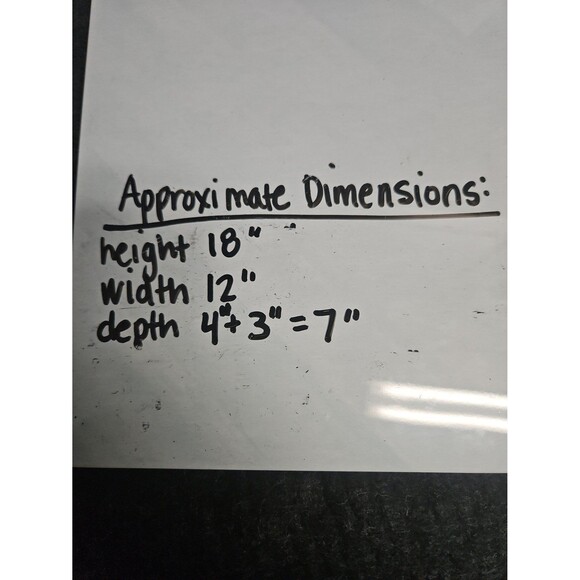 Approximate Dimensions:
height 18"
width 12"
depth 4"+ 3" = 7"